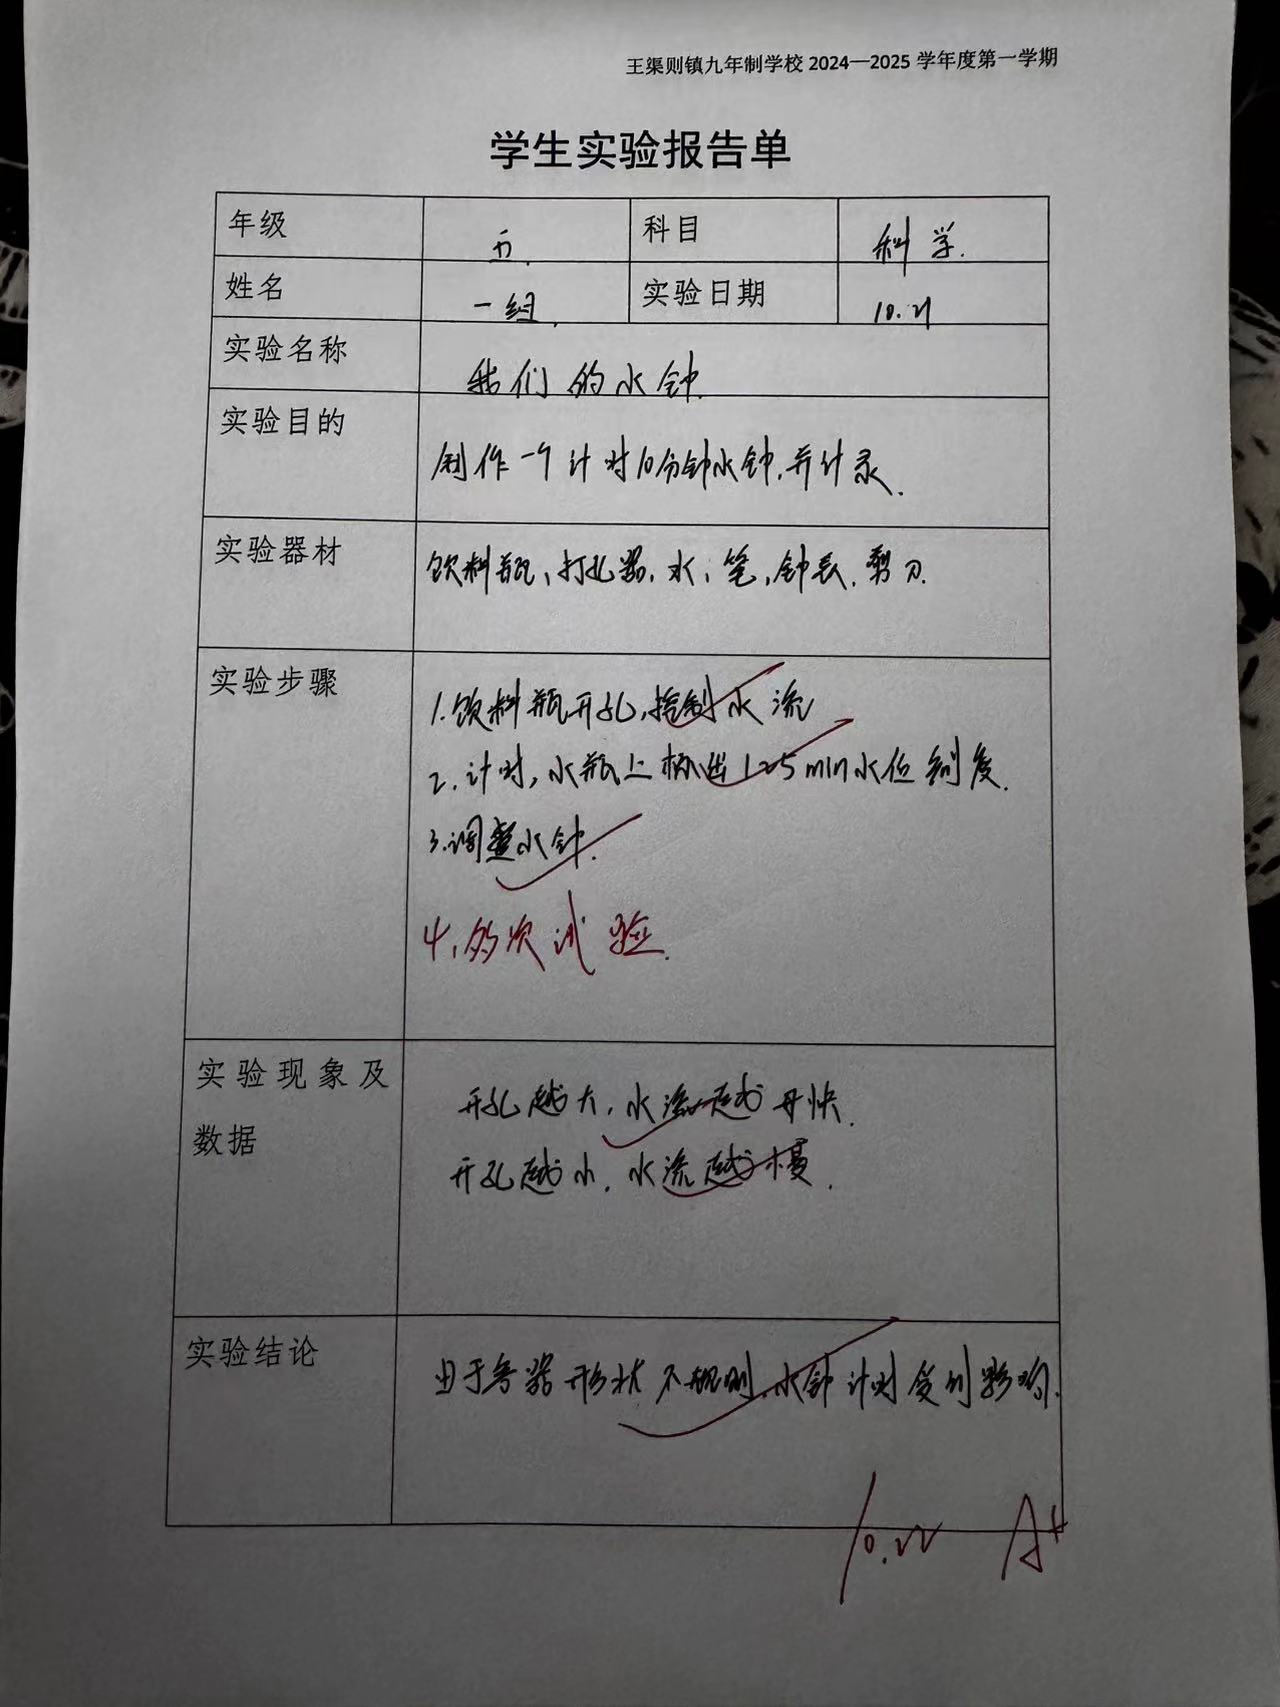 王渠则镇九年制学校 2024—2025 学年度第一学期
学生实验报告单
年级 五. 科目 科学.
姓名 一组. 实验日期 10.21
实验名称 我们的水钟.
实验目的 制作一个计时10分钟水钟,并计录.
实验器材 饮料瓶、打孔器、水、笔、钟表、剪刀.
实验步骤 1.饮料瓶开孔,控制水流
2.计时,水瓶上标出125min水位刻度.
3.调整水钟.
4.多次试验.
实验现象及
数据
开孔越大,水流越快.
开孔越小.水流越慢.
实验结论 由于容器形状不规则,水钟计时受到影响.
10.22 A+